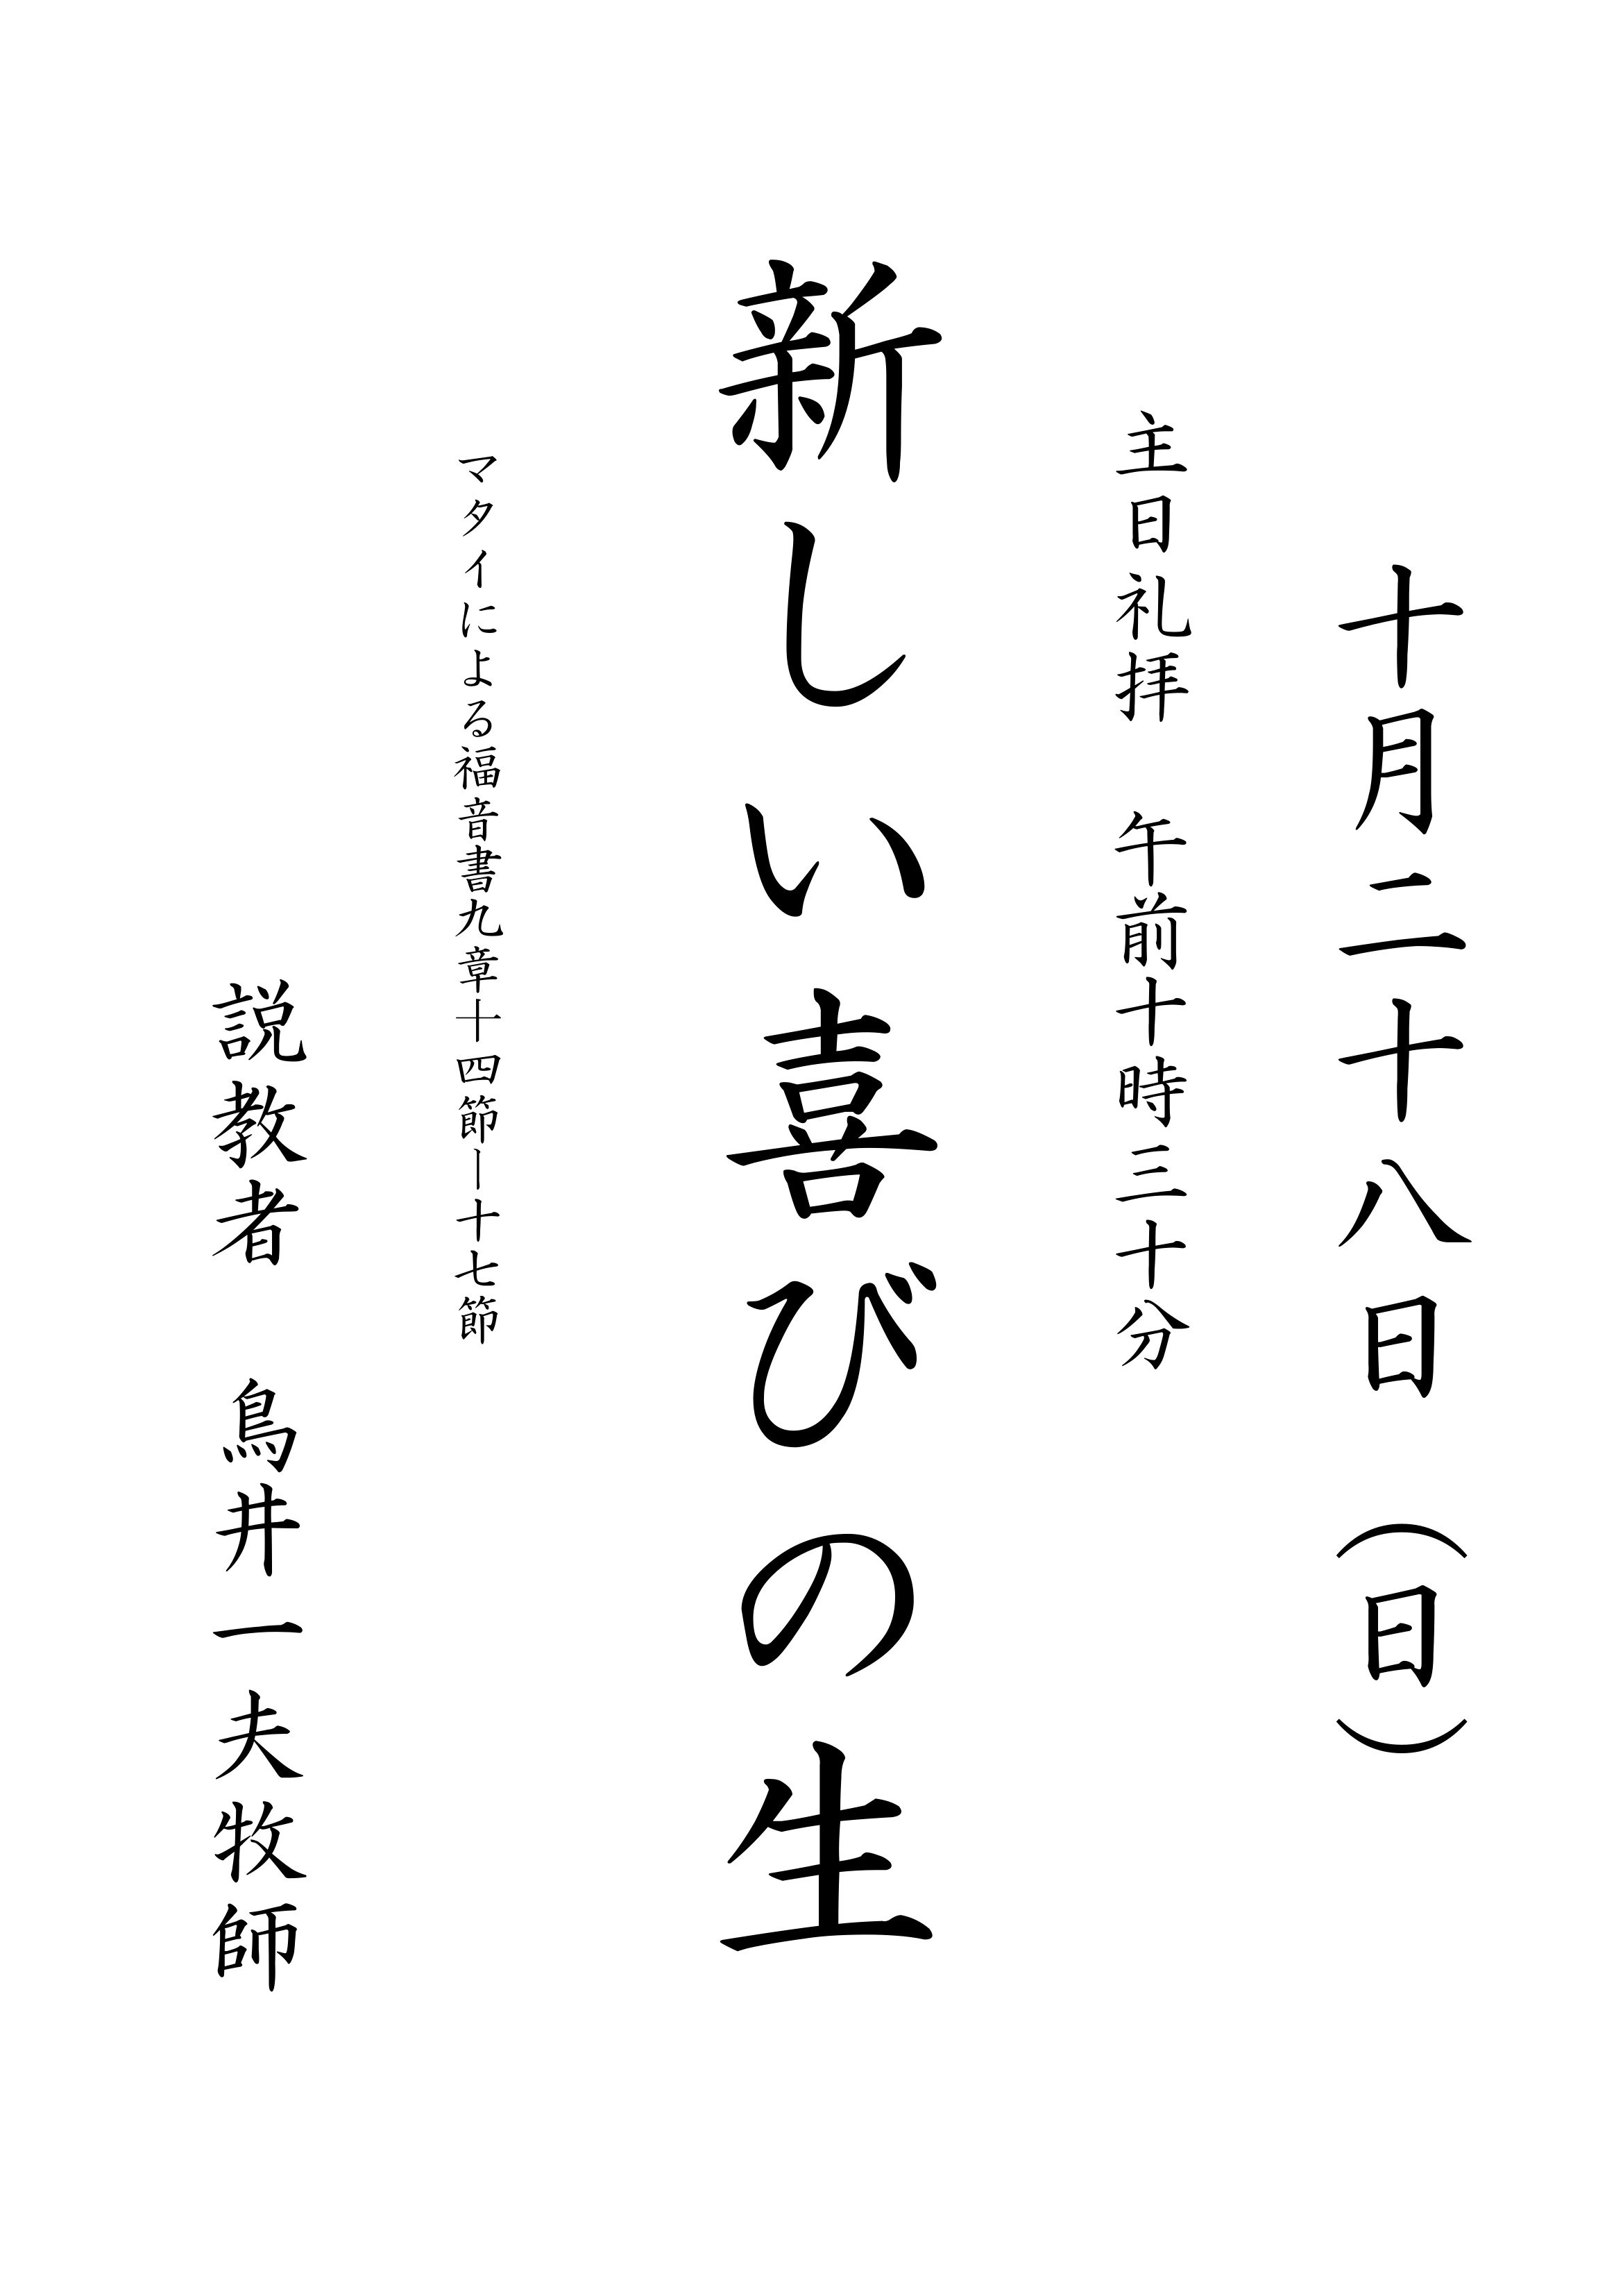 十月二十八日　（日）
主日礼拝　午前十時三十分
新しい喜びの生
マタイによる福音書九章十四節―十七節
説教者　鳥井一夫牧師